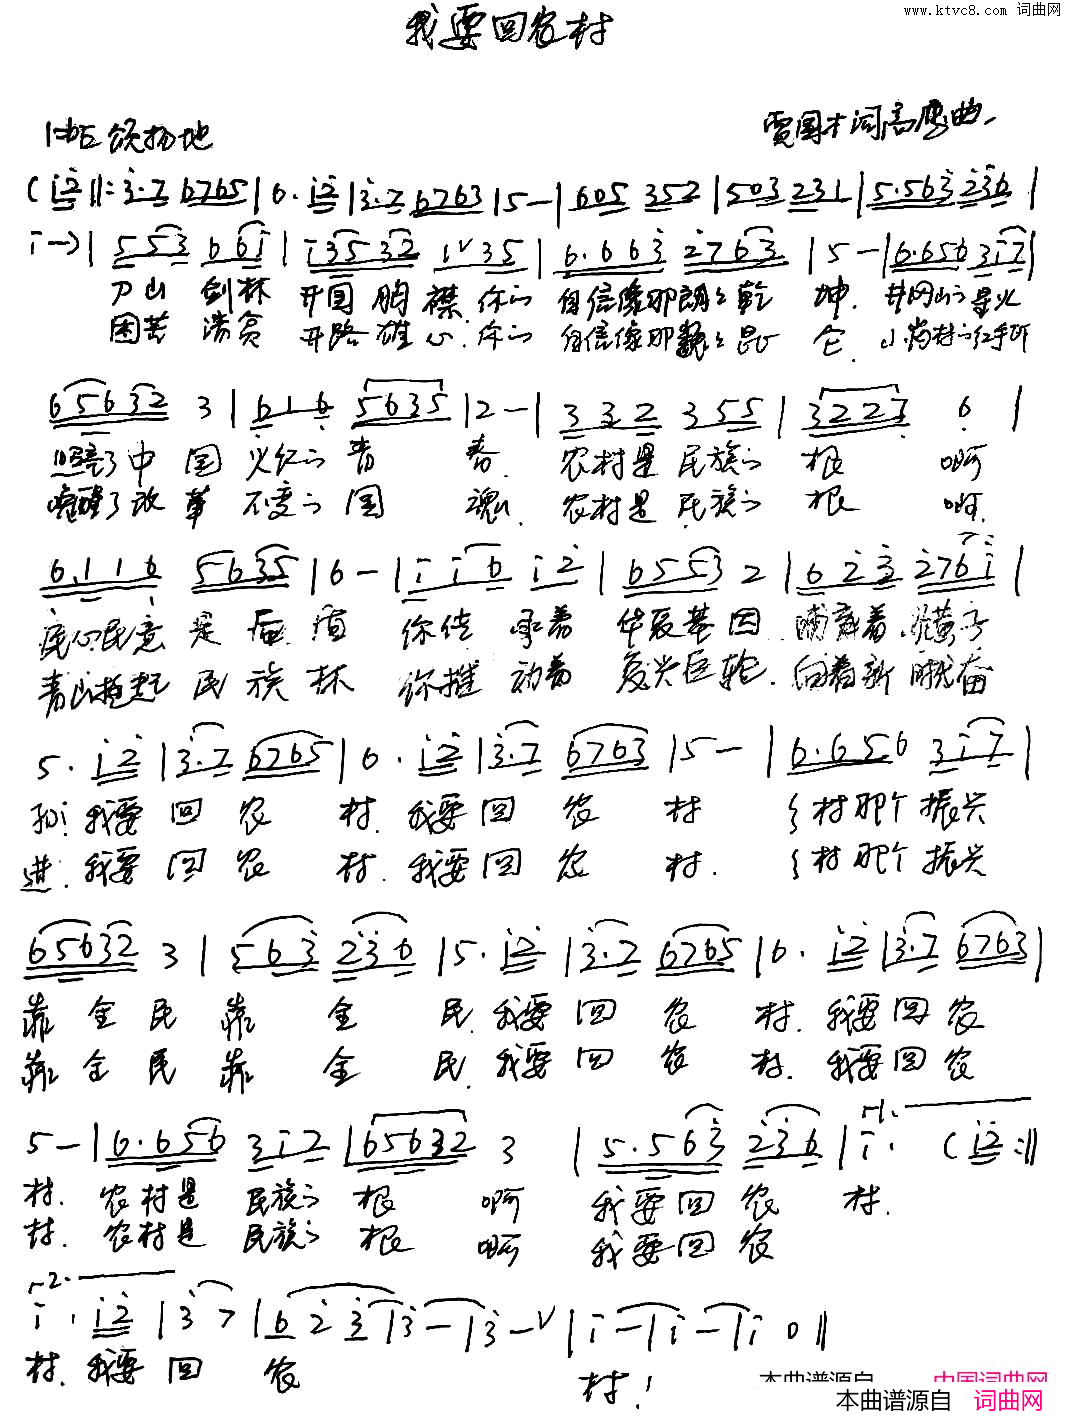 www.ktvc8.com 词曲网
我要回农村
1=bE 颂扬地
贾国才词 高 曲
( i 2 ‖: 3·7 6765 | 6· i2 | 3·7 6763 | 5 - | 605 352 | 503 231 | 5·563 236 |
i -) | 553 66i | i3532 1 35 | 6·663 2763 | 5 - | 6·656 3i7 |
刀山 剑林 开国 胸襟.你的 自信像那朗朗乾 坤.井冈山的星火
困苦 清贫 开路雄心.你的 自信像那巍巍昆 仑.小岗村的红手印
65632 3 | 616 5635 | 2 - | 332 355 | 3227 6 |
照亮了中 国 火红的青 春. 农村是 民族的 根 啊
唤醒了改 革 不变的国 魂. 农村是 民族的 根 啊.
6·116 5635 | 6 - | i i6 i2 | 6553 2 | 623 276i |
民心民意 是 你传 承着 华夏基因.
青山挽起 民族林 你推 动着 复兴巨轮.向着新时代奋
5· i2 | 3·7 6765 | 6· i2 | 3·7 6763 | 5 - | 6·656 3i7 |
孙! 我要 回 农 村.我要 回 农 村 乡村那个 振兴
进.我要 回 农 村.我要 回 农 村. 乡村那个 振兴
65632 3 | 563 236 | 5· i2 | 3·7 6765 | 6· i2 | 3·7 6763 |
靠 全 民 靠 全 民.我要 回 农 村.我要 回 农
靠 全 民 靠 全 民.我要 回 农 村.我要 回 农
5 - | 6·656 3i2 | 65632 3 | 5·563 236 | i· ( i2 :‖
村. 农村是 民族的 根 啊 我要回 农 村.
村. 农村是 民族的 根 啊 我要回 农
i· i2 | 3 7 | 6 2 3 | 3 - | 3 - | i - | i - | i 0 ‖
村.我要 回 农 村!
本曲谱源自 中国词曲网
本曲谱源自 词曲网